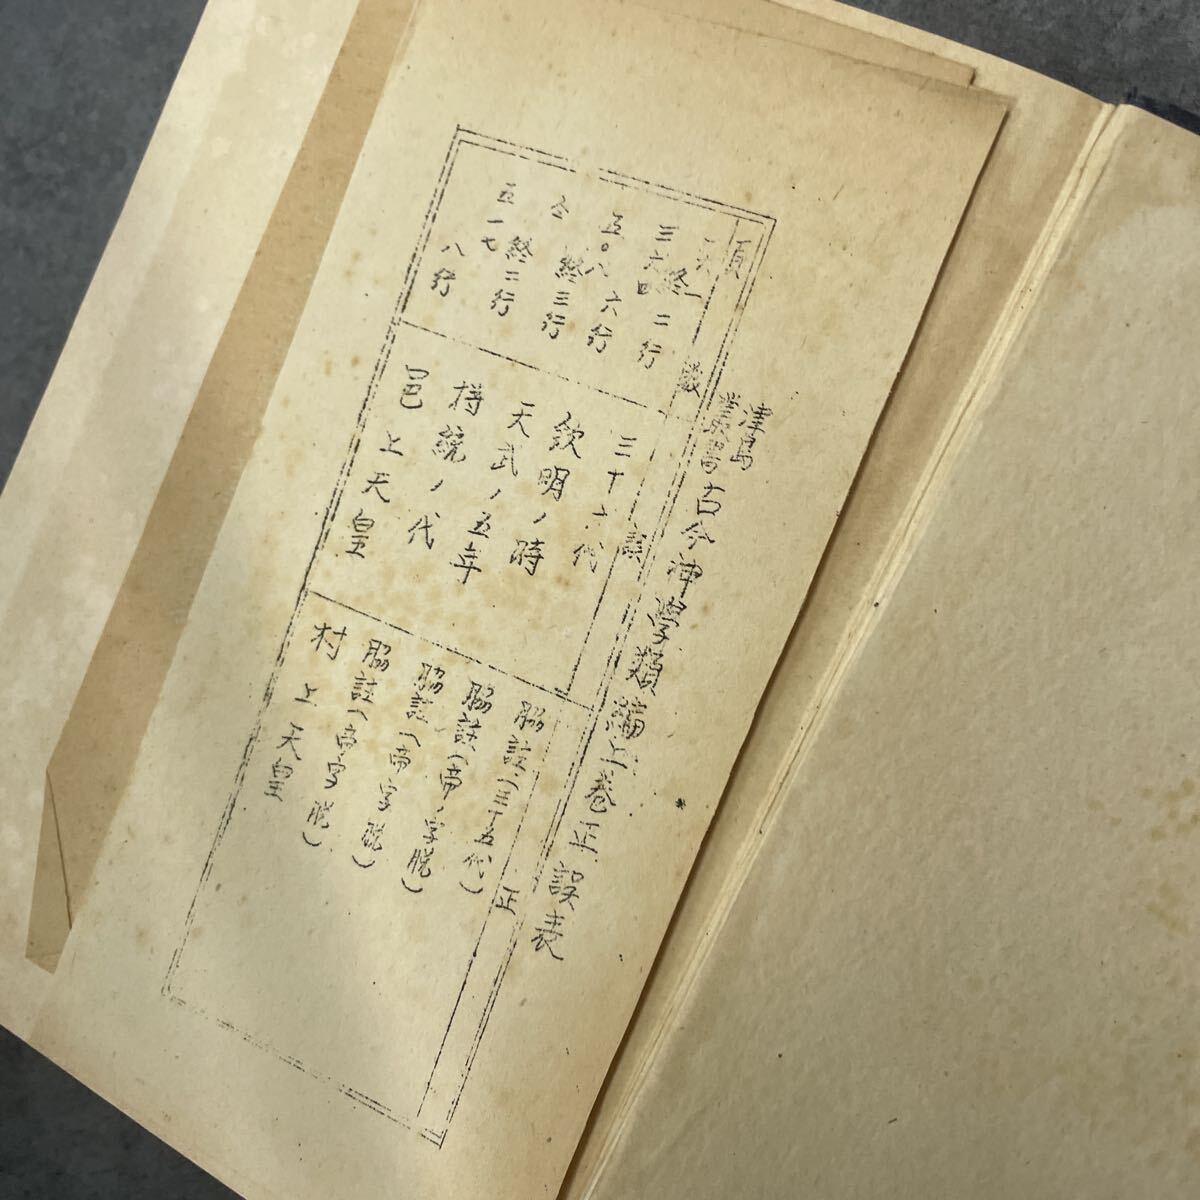 津島
叢書
古今神學類編上巻正誤表
頁 數 誤 正
三六四 二行 三十六代 脇註(三十五代)
五〇八 六行 欽明ノ時 脇註(帝ノ字脱)
仝 終三行 天武ノ五年 脇註(帝字脱)
五一七 終二行 持統ノ代 脇註(帝字脱)
八行 邑上天皇 村上天皇